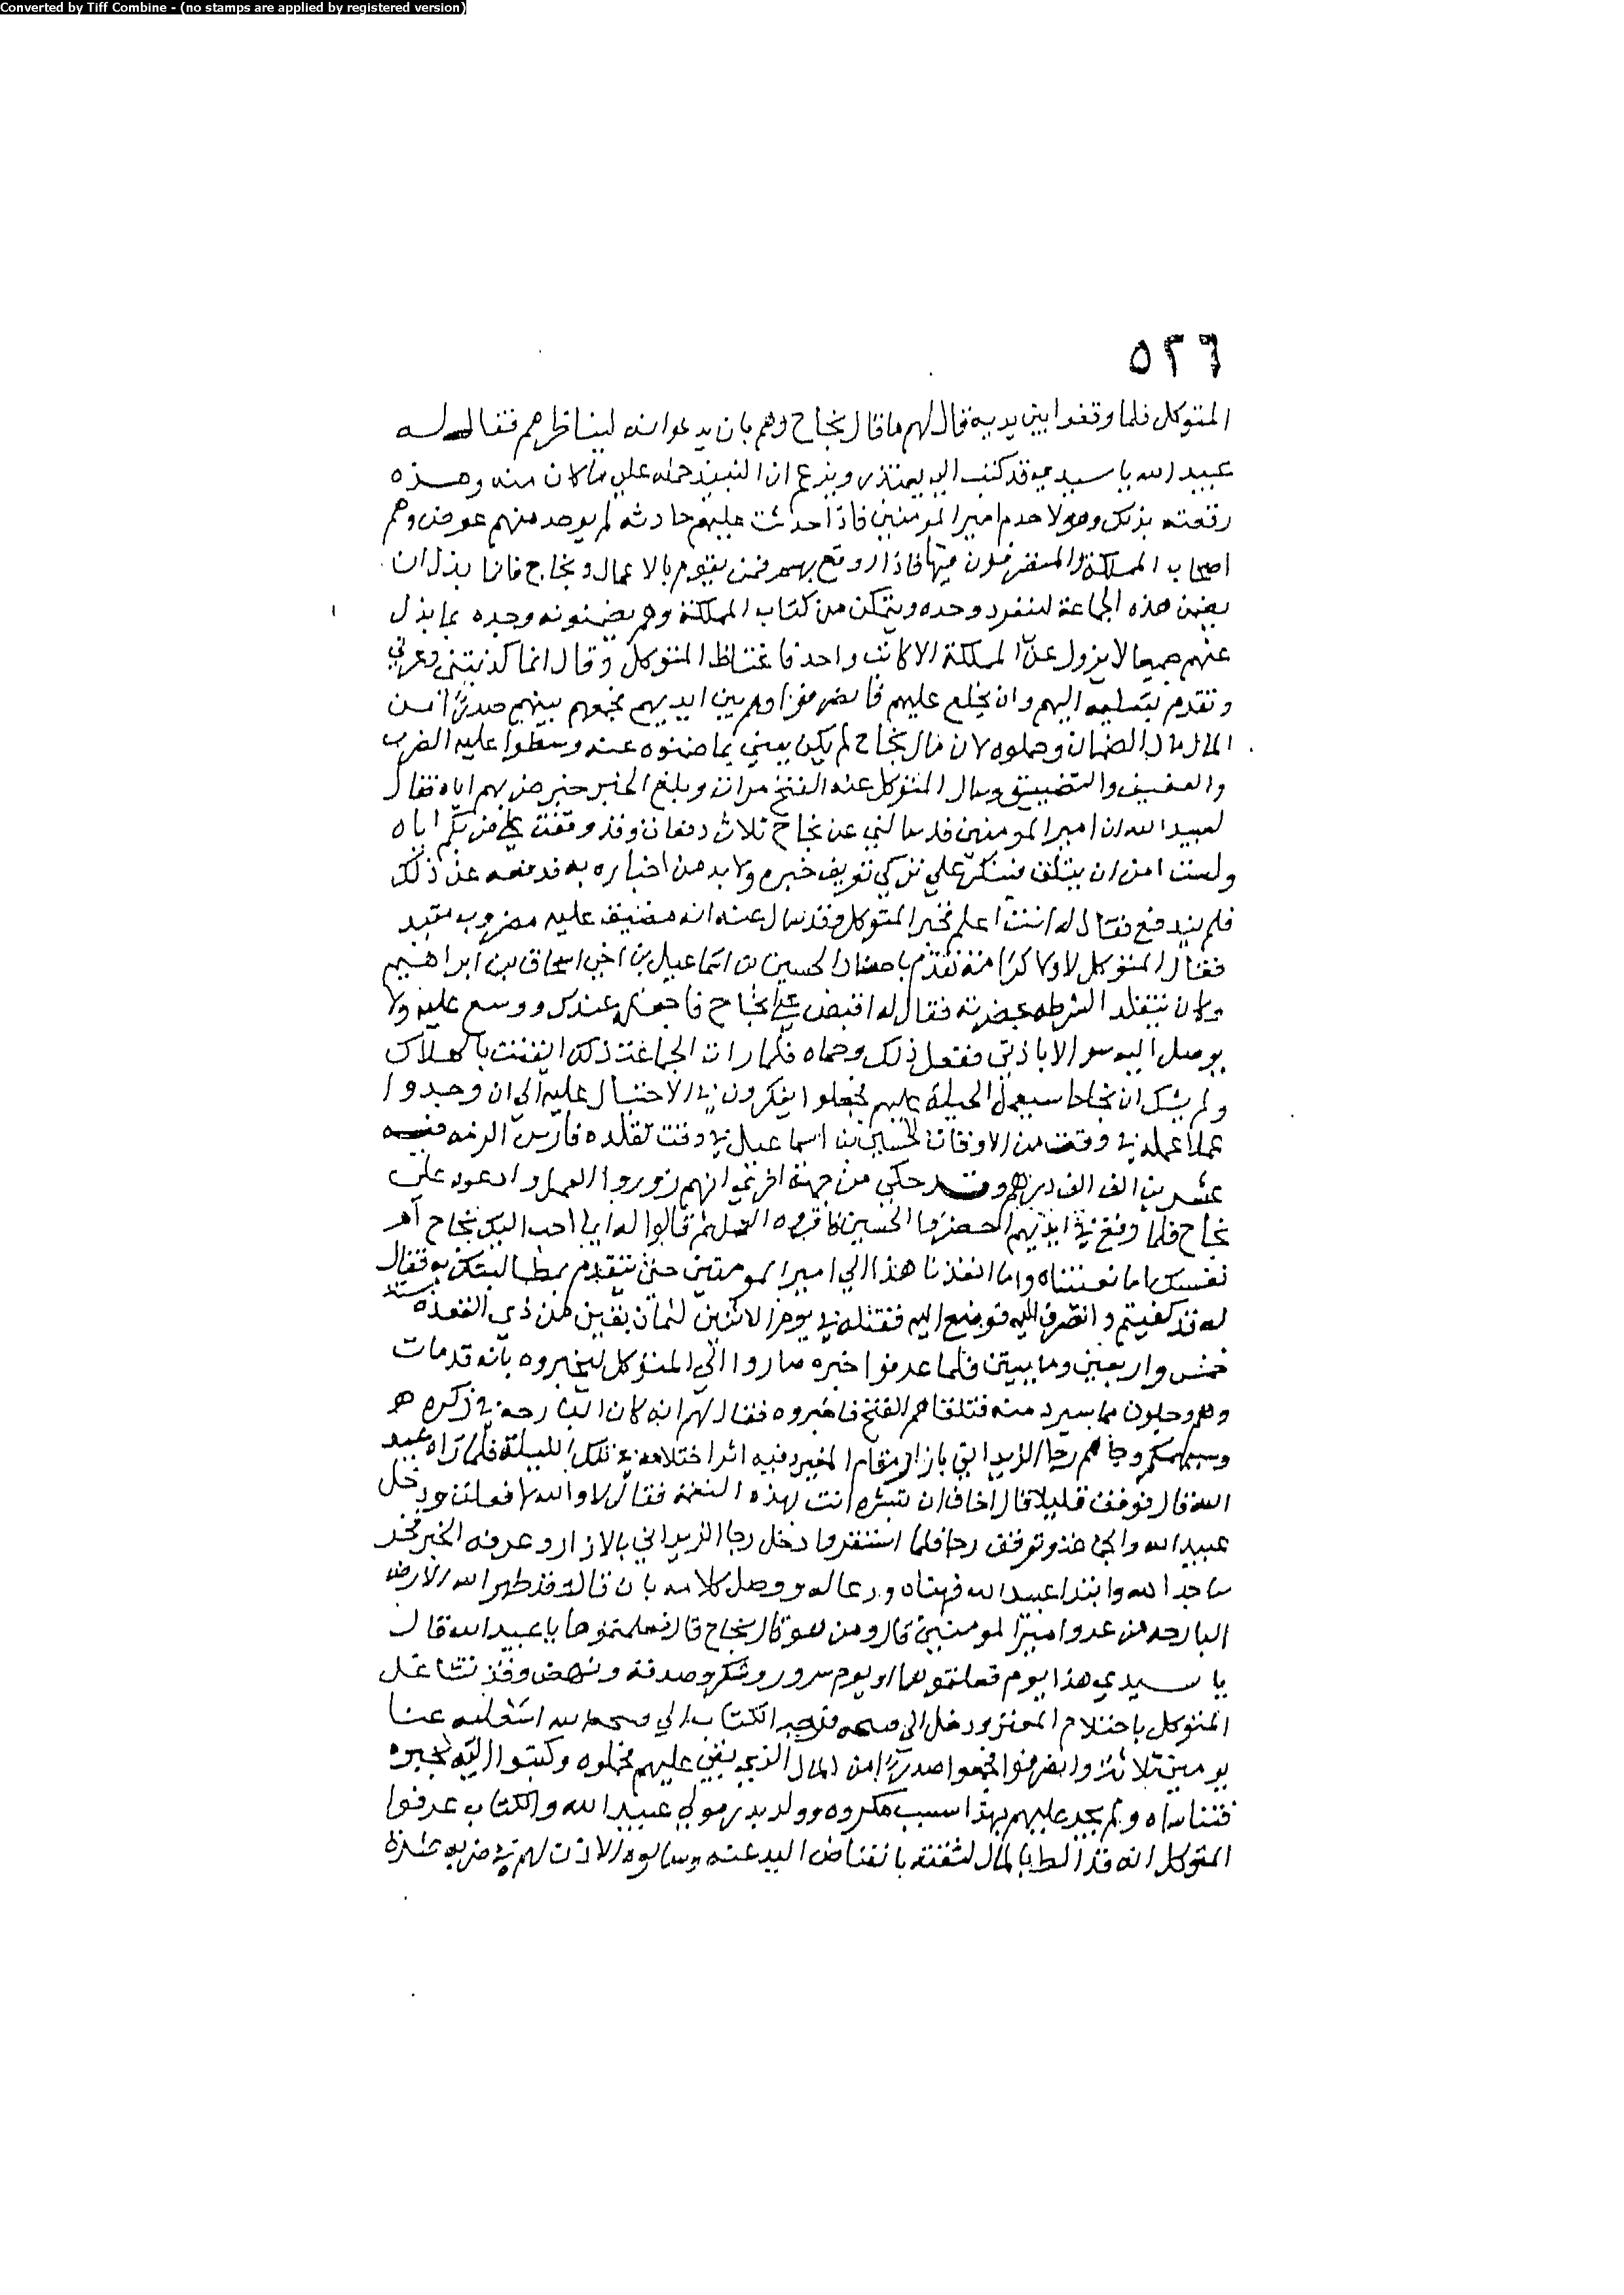 Converted by Tiff Combine - (no stamps are applied by registered version)
٥٢٦
المتوكل فلما وقفوا بين يديه قال لهم ما قال نجاح وهم بان يدعوا له ليناظرهم فقال له
عبيد الله يا سيدي قد كتب الي يعتذر ويزعم ان النبيذ حمله على ما كان منه وهذه
رقعته بذلك وهولا خدم امير المومنين فاذا حدثت عليهم حادثه لم يوجد منهم عوض وهم
اصحاب المملكة والمتصرفون فيها فاذا اوقع بهم فمن يقوم بالاعمال ونجاح فانما بذل ان
يضمن هذه الجماعة لينفرد وحده ويتمكن من كتاب المملكة وهم يضمنونه وحده بما بذل
عنهم جميعا لا يزول عن المملكة الا كاتب واحد فاغتاظ المتوكل وقال انما كذبتني وغرني
وتقدم بتسليمه اليهم وان يخلع عليهم فانصرفوا وهو بين ايديهم فجمعهم بينهم صدرا من
المال مال الضمان وحملوه لان مال نجاح لم يكن يفي بما ضمنوه عنه وبسطوا عليه الضرب
والتعنيف والتضييق وسال المتوكل عنه الفتح مرات وبلغ الخبر خبر ضربهم اياه فقال
لعبيد الله ان امير المومنين قد سالني عن نجاح ثلاث دفعات وقد وقفت على ضربكم اياه
ولست امن ان يتلف فينكر علي تركي تعريفه خبره ولا بد من اخباره به فدفعه عن ذلك
فلم يندفع فقال له انت اعلم فخبر المتوكل وقد سال عنه انه مضيق عليه مضروب مقيد
فقال المتوكل لا ولا كرامة تقدم باحضار الحسين بن اسماعيل بن اخي اسحاق بن ابراهيم
وكان يتقلد الشرطه بحضرته فقال له اقبض على نجاح فاجعله عندك ووسع عليه ولا
يوصل اليه سو الا باذني ففعل ذلك وحماه فلما رات الجماعة ذلك ايقنت بالهلاك
ولم يشك ان نجاحا سيعمل الحيلة عليهم فجعلوا يفكرون في الاحتيال عليه الى ان وجدوا
عملا عمله في وقت من الاوقات للحسين بن اسماعيل في وقت تقلده فارس الزمه فيه
عشرين الف الف درهم وقد حكي من جهة اخرى انهم زوروا العمل وادعوه على
نجاح فلما وقع في ايديهم احضروا الحسين فاقروه العمل ثم قالوا له ايما احب اليك نجاح ام
نفسك اما نعشتناه واما انفذنا هذا الي امير المومنين حتى يتقدم بمطالبتك به فقال
له قد كفيتم وانصرف اليه فوضع اليه فقتله في يوم الاثنين لثمان بقين من ذي القعدة سنة
خمس واربعين ومايتين فلما عرفوا خبره صاروا الى المتوكل ليخبروه بانه قد مات
وهم وجلون مما سيرد منه فتلقاهم الفتح فاخبروه فقال لهم انه كان البارحة في ذكره هو
وجاهم رجا الزيداني بازار فيه اثر احتلامه في تلك الليلة فلما راه عبيد
الله قال توقف قليلا قال اخاف ان تبشره انت بهذه النعمة فقال لا والله لا فعلت ودخل
عبيد الله والجماعة وتوقف رجا فلما استقروا دخل رجا الزيداني بالازار وعرفه الخبر فخر
ساجدا لله وابتدا عبيد الله فهناه ودعا له ووصل كلامه بان قال قد طهر الله الارض
البارحه من عدو امير المومنين قال ومن هو قال نجاح قال فعلتموها يا عبيد الله قال
يا سيدي هذا يوم فعلتموها او يوم سرور وشكر وصدقة ونهض وقد تشاغل
المتوكل باحتلام المعتز ودخل الى
يومين ثلاثة وانصرفوا فجمعوا صدرا من المال الذي بقي عليهم فحملوه وكتبوا اليه
فتناساه ولم يجر عليهم بهذا سبب مكروه عبيد الله والكتاب عرفوا
المتوكل انه قد الط بالمال لثقته وسالوه الاذن لهم في ضربه عشرة